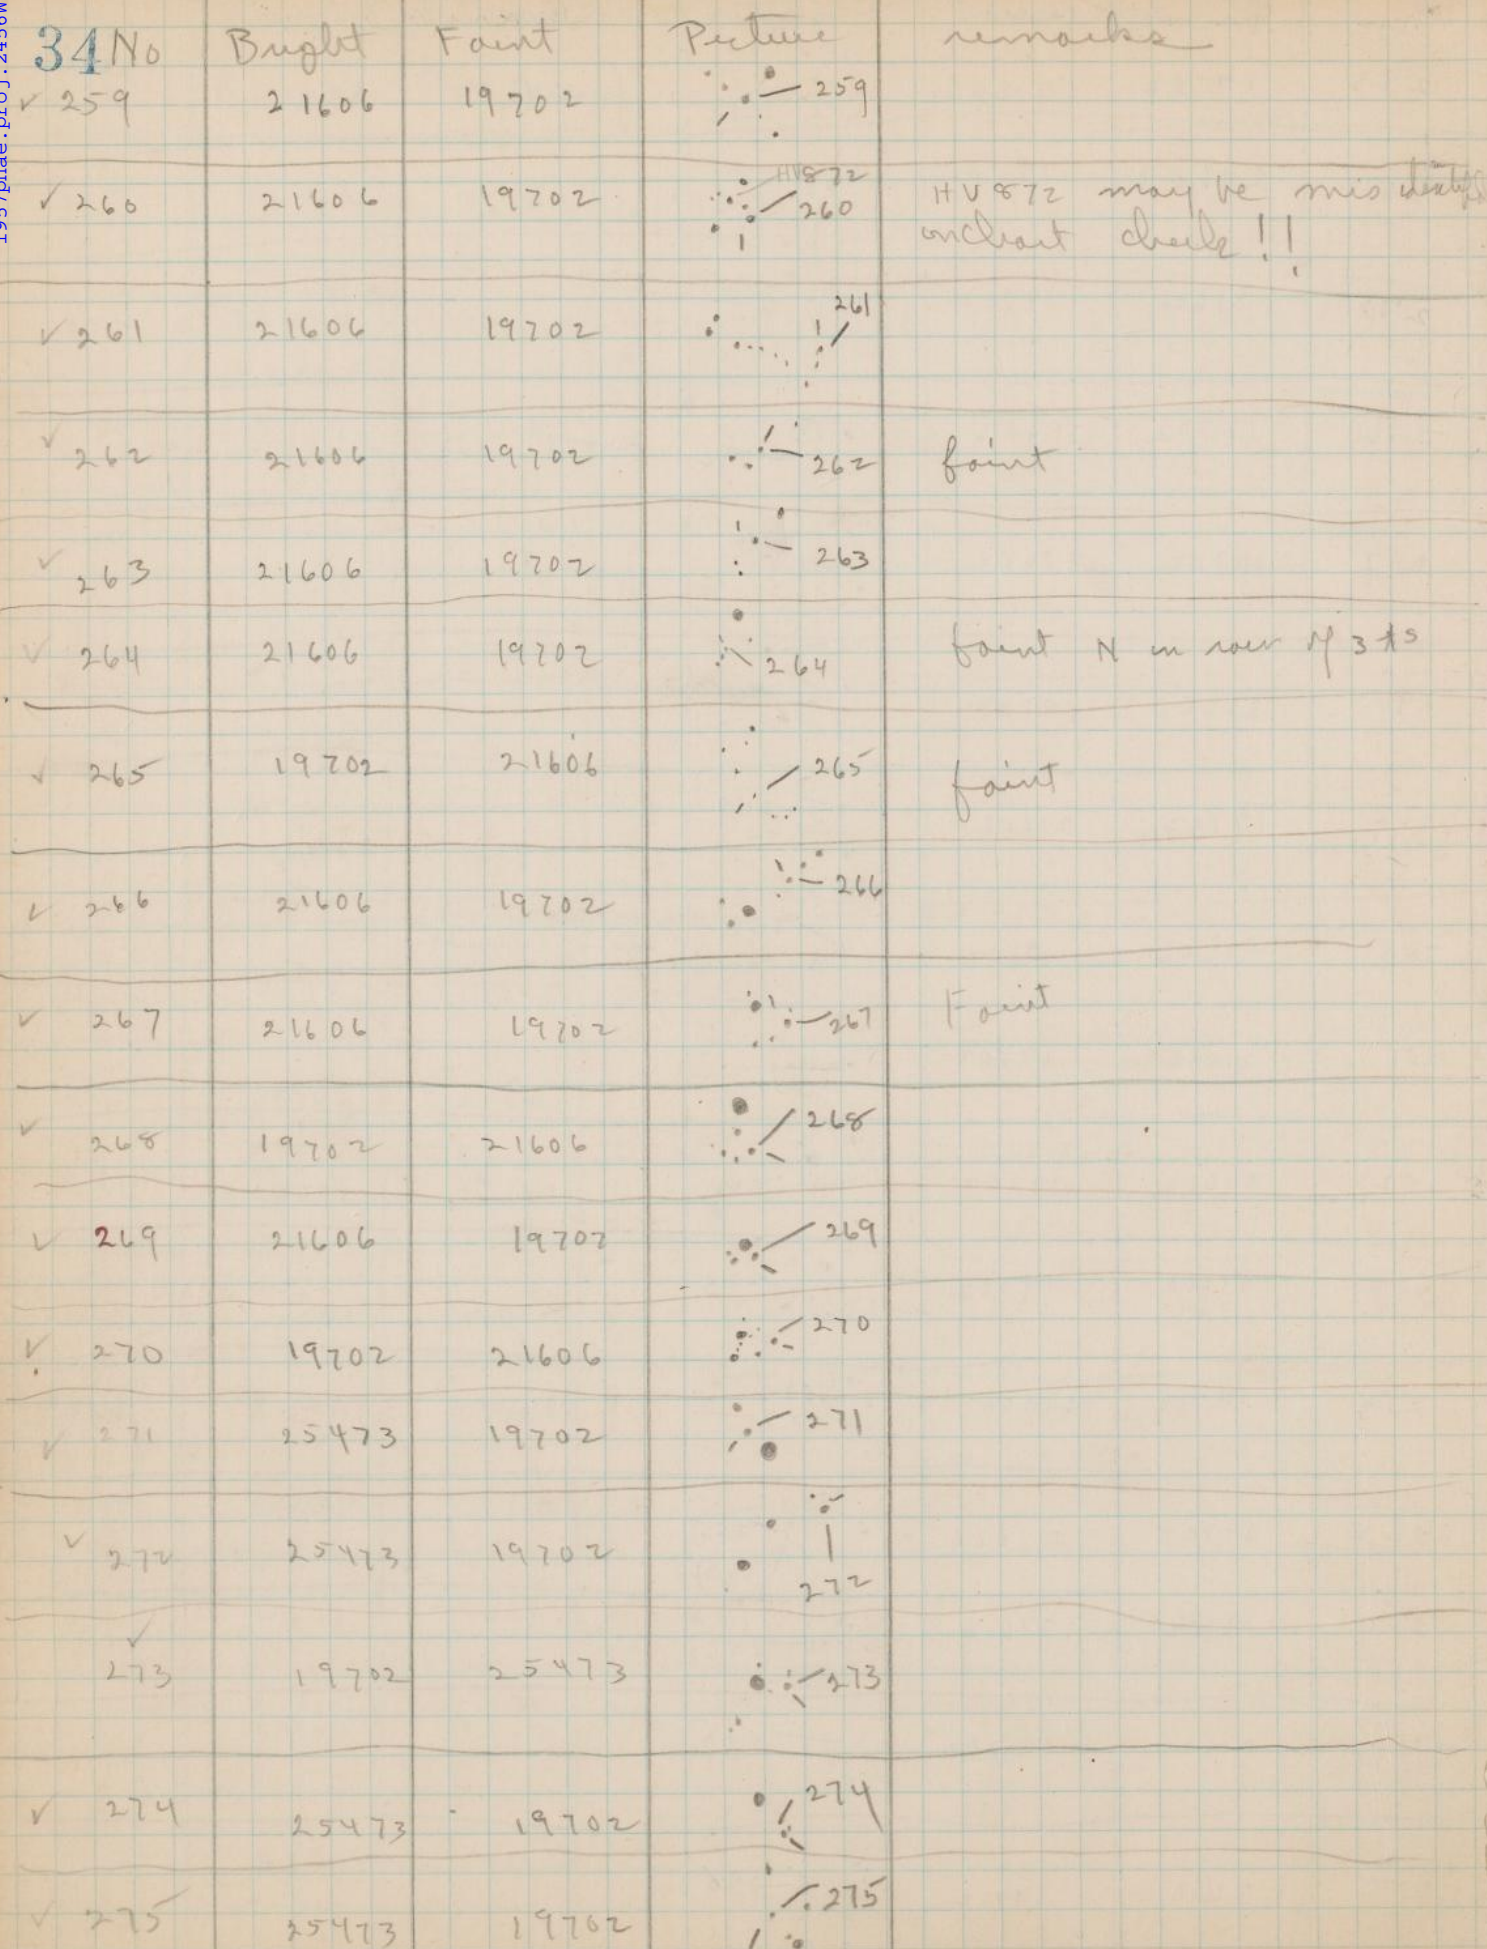 34 No Bright Faint Picture remarks
✓ 259 21606 19702 259
✓ 260 21606 19702 HV872 260 HV872 may be mis identified
on chart check!!
✓ 261 21606 19702 261
✓ 262 21606 19702 262 faint
✓ 263 21606 19702 263
✓ 264 21606 19702 264 faint N in row of 3 *s
✓ 265 19702 21606 265 faint
✓ 266 21606 19702 266
✓ 267 21606 19702 267 Faint
✓ 268 19702 21606 268
✓ 269 21606 19702 269
✓ 270 19702 21606 270
✓ 271 25473 19702 271
✓ 272 25473 19702 272
✓ 273 19702 25473 273
✓ 274 25473 19702 274
✓ 275 25473 19702 275